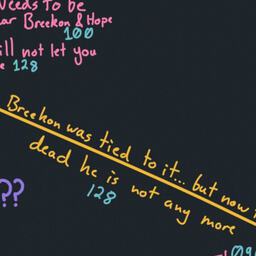 Needs to be
ar Breekon & Hope
100
ill not let you
e 128
Breekon was tied to it... but now
dead he is not any more
128
??
09